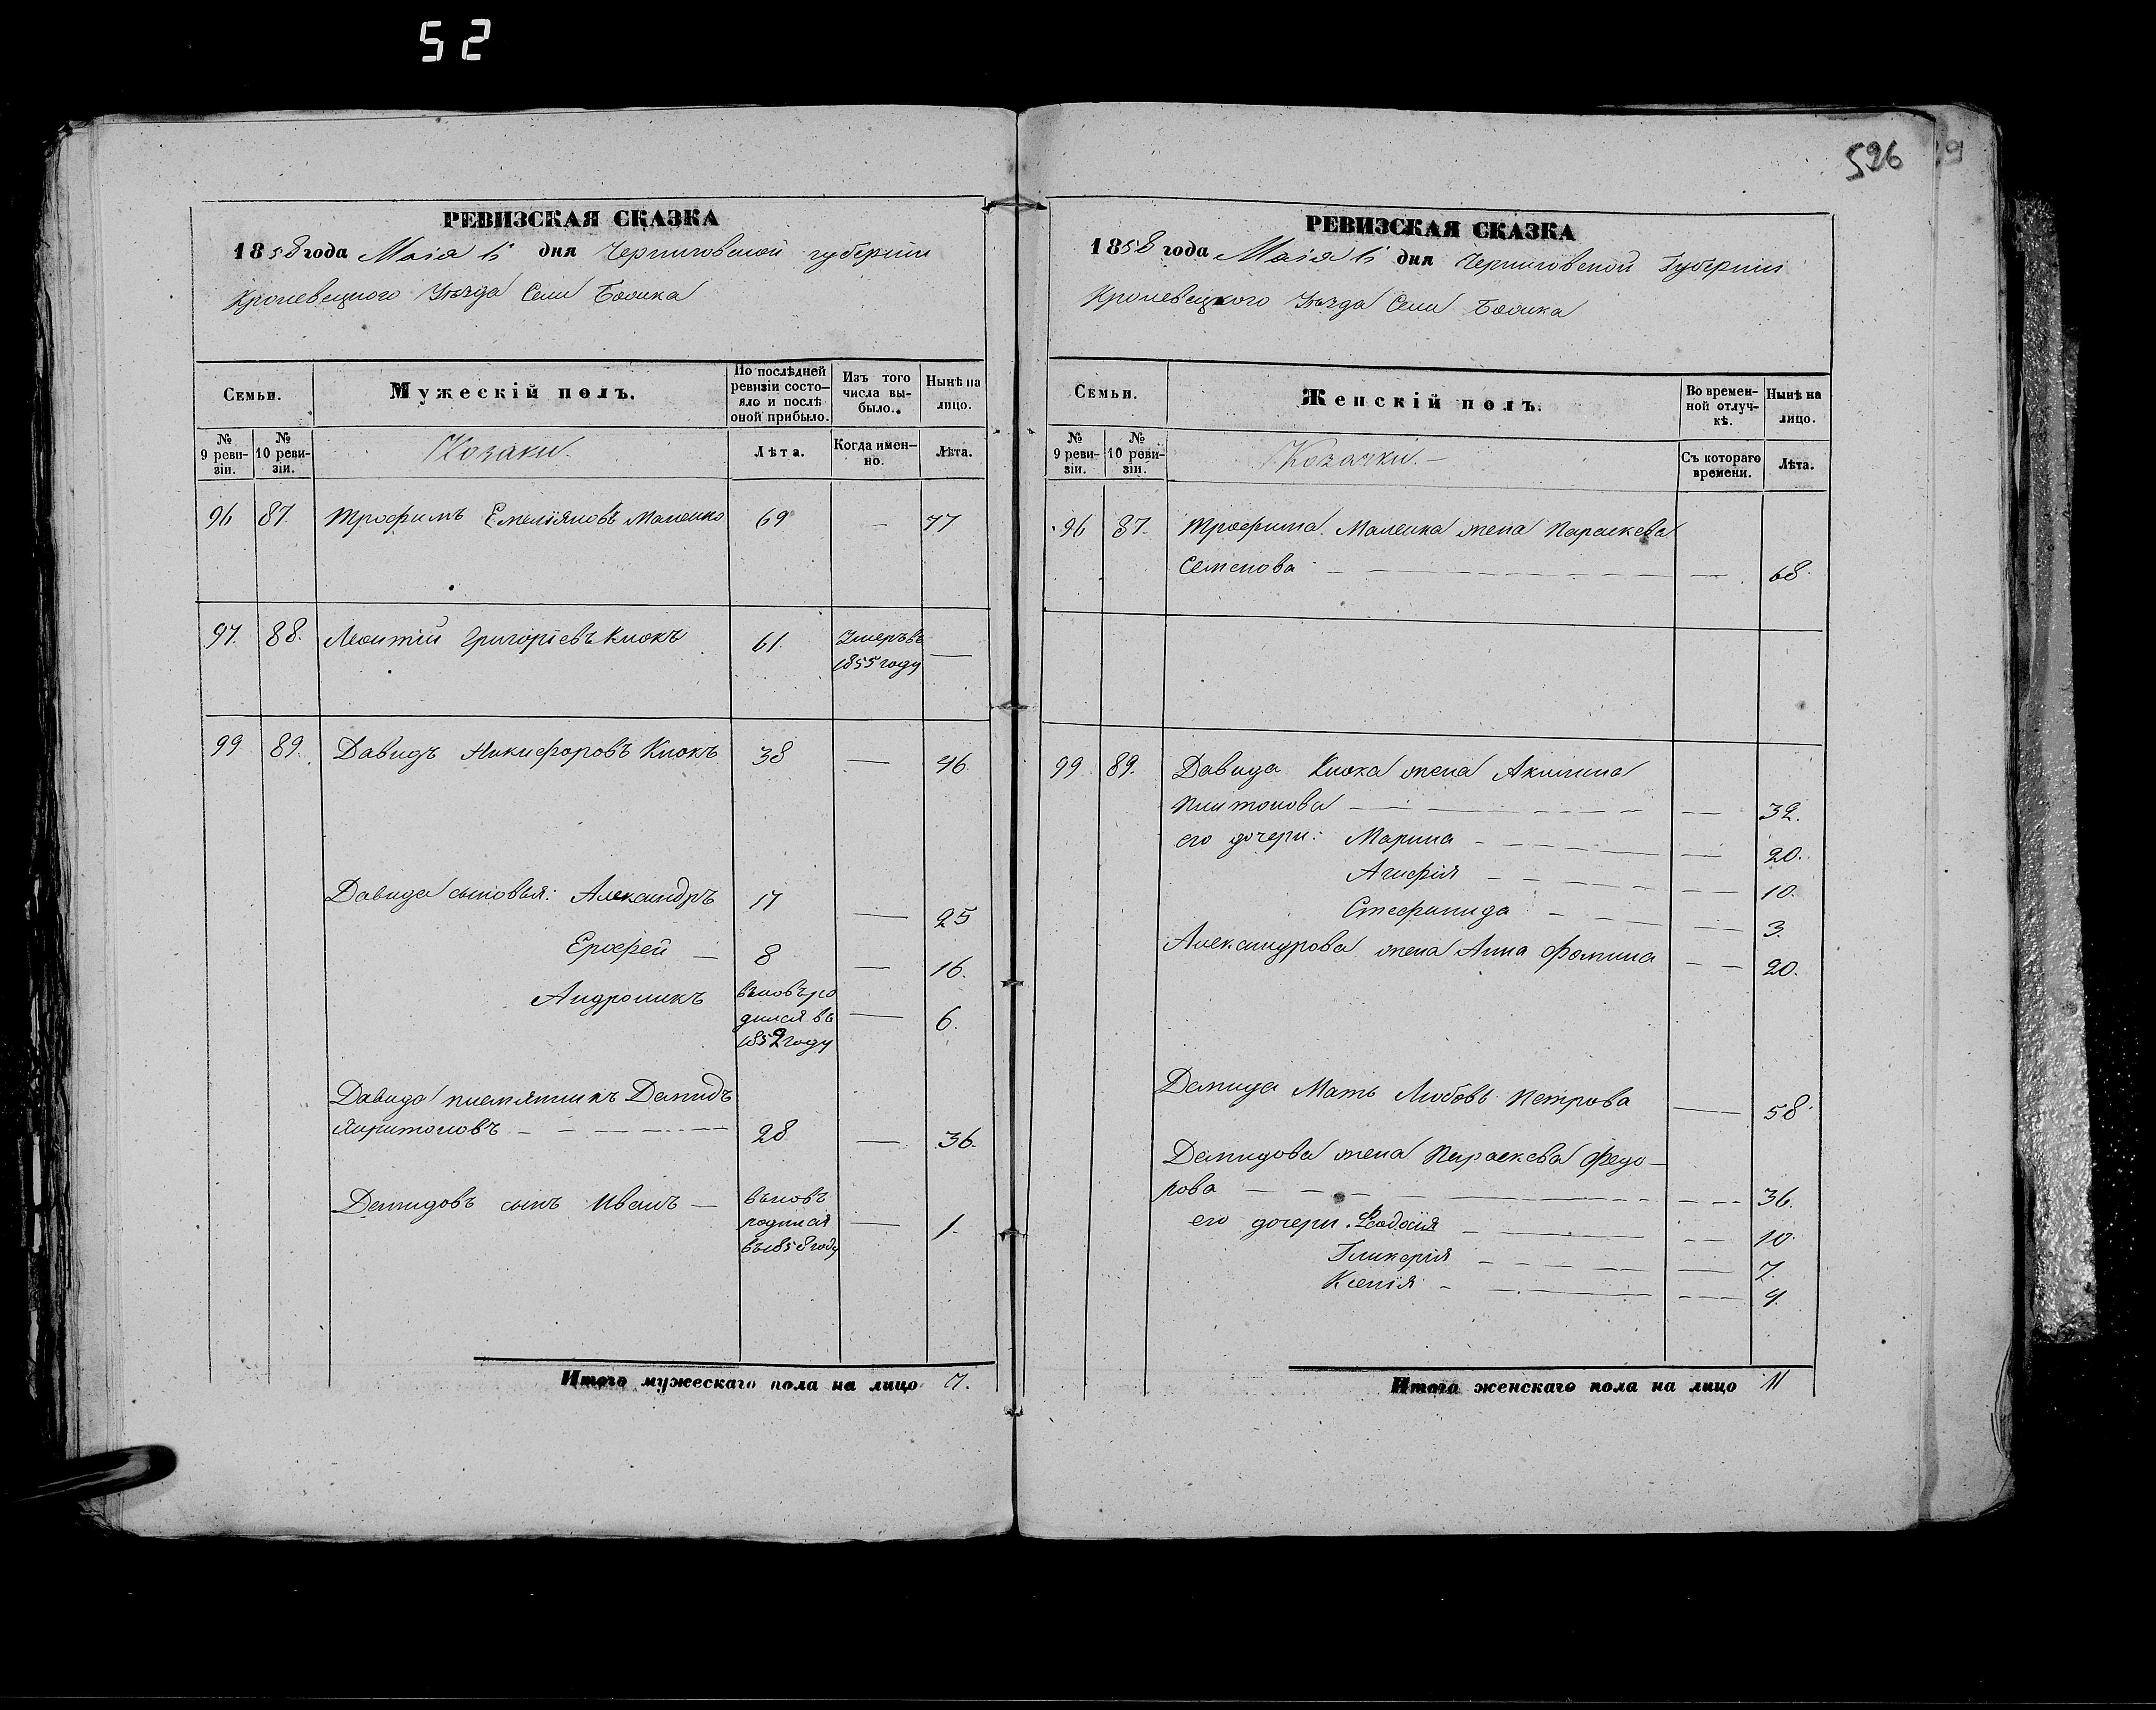 52
596
29
РЕВИЗСКАЯ СКАЗКА
1858 года Маія 6 дня Черниговской губерніи
Кролевецкого Уѣзда Села
Семьи.
Мужескій полъ.
По послѣдней ревизіи состо-
яло и послѣ оной прибыло.
Изъ того числа вы-
было.
Нынѣ на лицо.
№ 9 реви-
зіи.
№ 10 реви-
зіи.
Козаки.
Лѣта.
Когда имен-
но.
Лѣта.
96 87. Трофимъ Емеліяновъ 69 — 77
97. 88. Леонтій Григоріевъ Клюкъ 61. Умеръ въ
1855 году —
99 89. Давидъ Никифоровъ Клюкъ 38 — 46
Давида сыновья: Александръ 17 — 25
Ерофей — 8 — 16.
Андроникъ вновь ро
дился въ — 6.
1852 году
Давида племянникъ Демидъ
Харитоновъ — 28 — 36.
Демидовъ сынъ Иванъ — вновь
родился — 1.
въ 1858 году
Итого мужескаго пола на лицо 7.
РЕВИЗСКАЯ СКАЗКА
1858 года Маія 6 дня Черниговской Губерніи
Кролевецкого Уѣзда Села
Семьи.
Женскій полъ.
Во времен-
ной отлуч-
кѣ.
Нынѣ на лицо.
№ 9 реви-
зіи.
№ 10 реви-
зіи.
Козачки.—
Съ котораго времени.
Лѣта.
96 87. Трофима жена Параскева
Семенова — — 68.
99 89. Давида Клюка жена Акилина
Платонова — — 39.
его дочери: Марина — — 20.
Агафія — — 10.
Стефанида — — 3.
Александрова жена Анна Фомина — — 20.
Демида Мать Любовь Петрова — 58.
Демидова жена Параскева Федо—
рова — — 36.
его дочери: Феодосія — — 10.
Гликерія — — 7.
Ксенія — — 4.
Итого женскаго пола на лицо 11